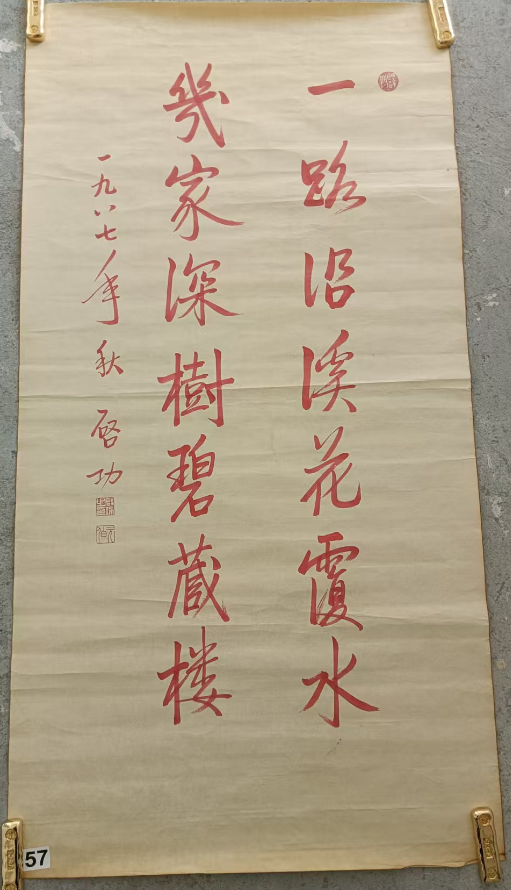 一路沿溪花覆水
幾家深樹碧蔵楼
一九八七年秋 启功
57